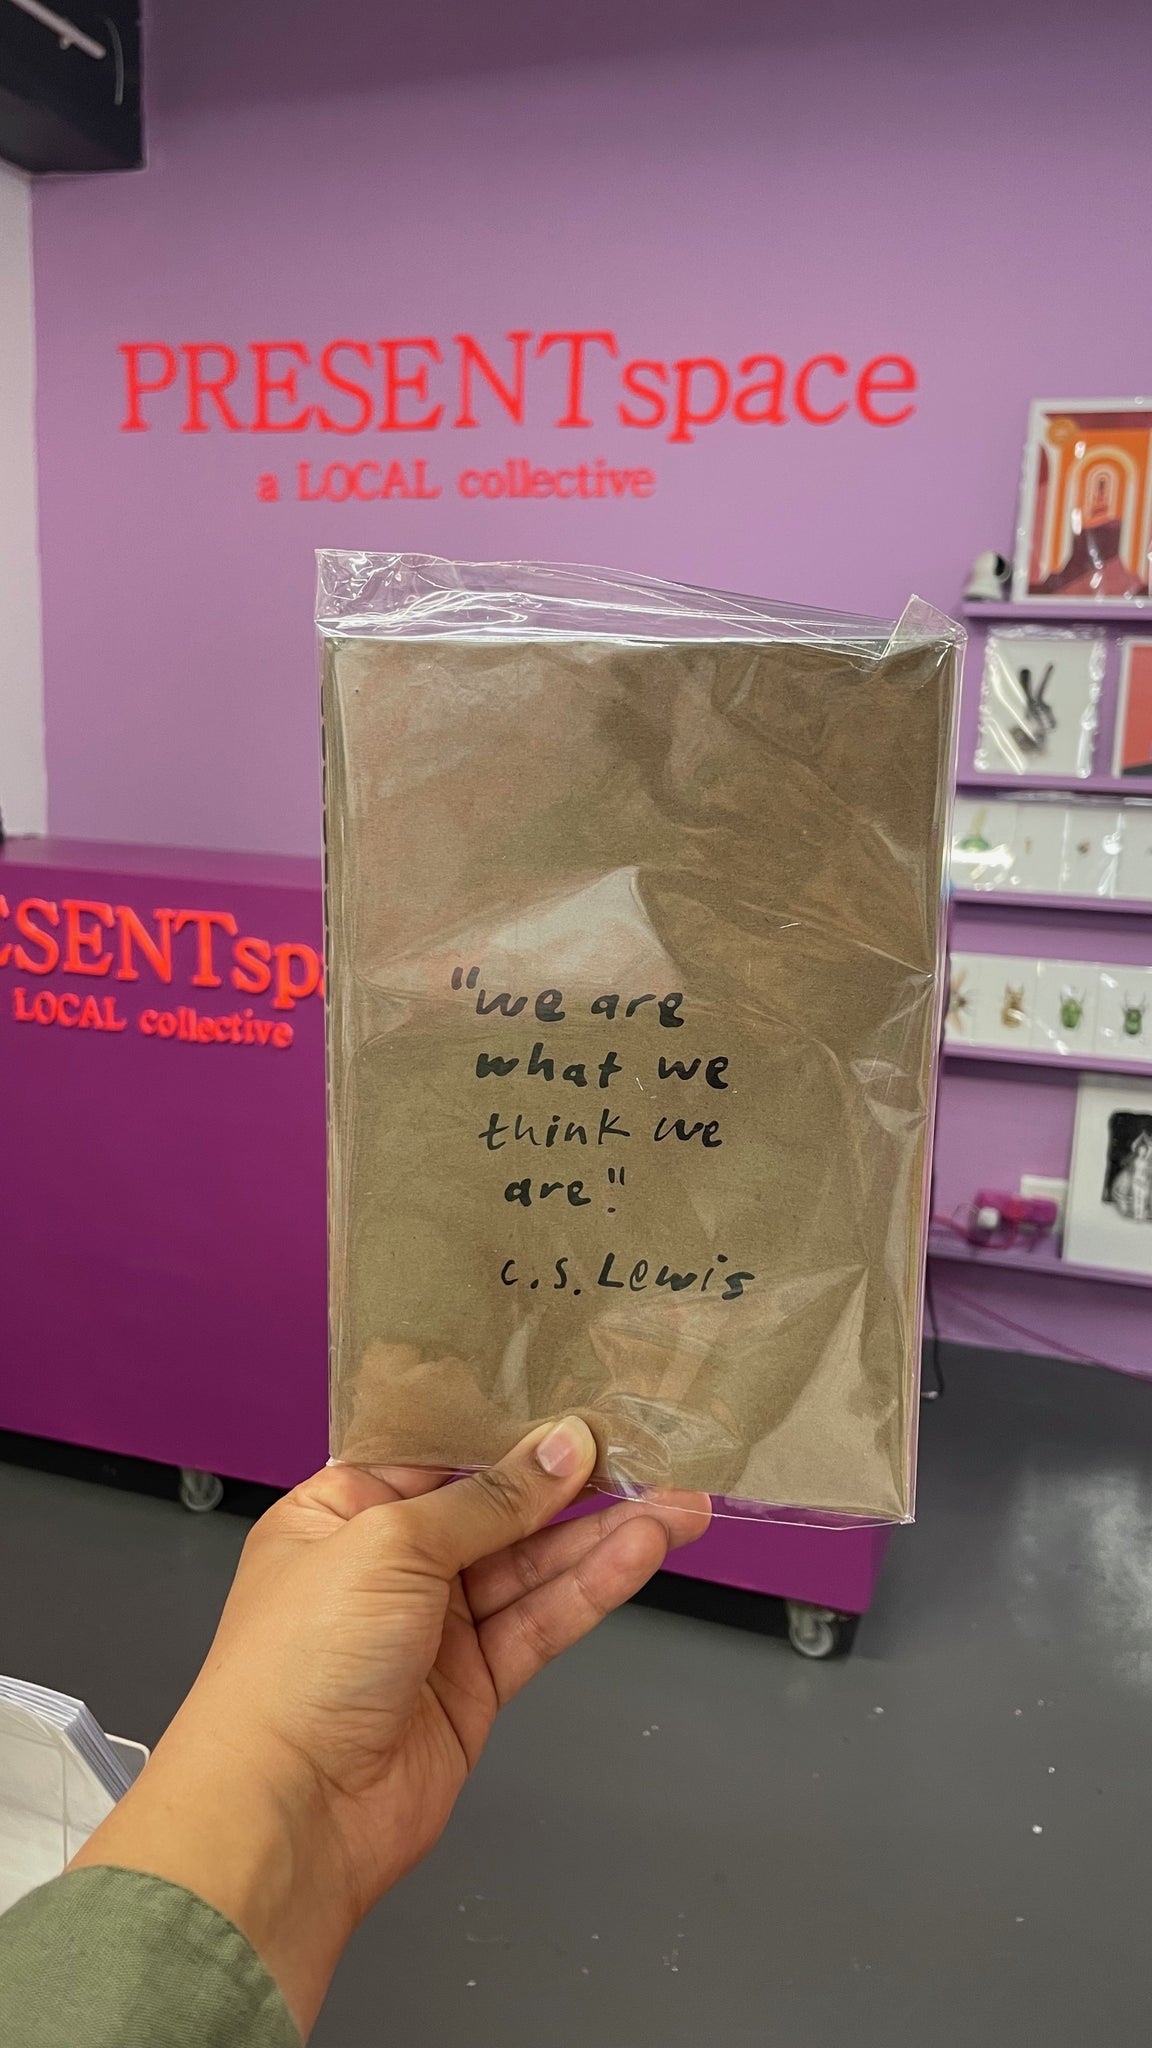 PRESENTspace
a LOCAL collective
ESENTsp
LOCAL collective
"we are
what we
think we
are".
C.S. Lewis